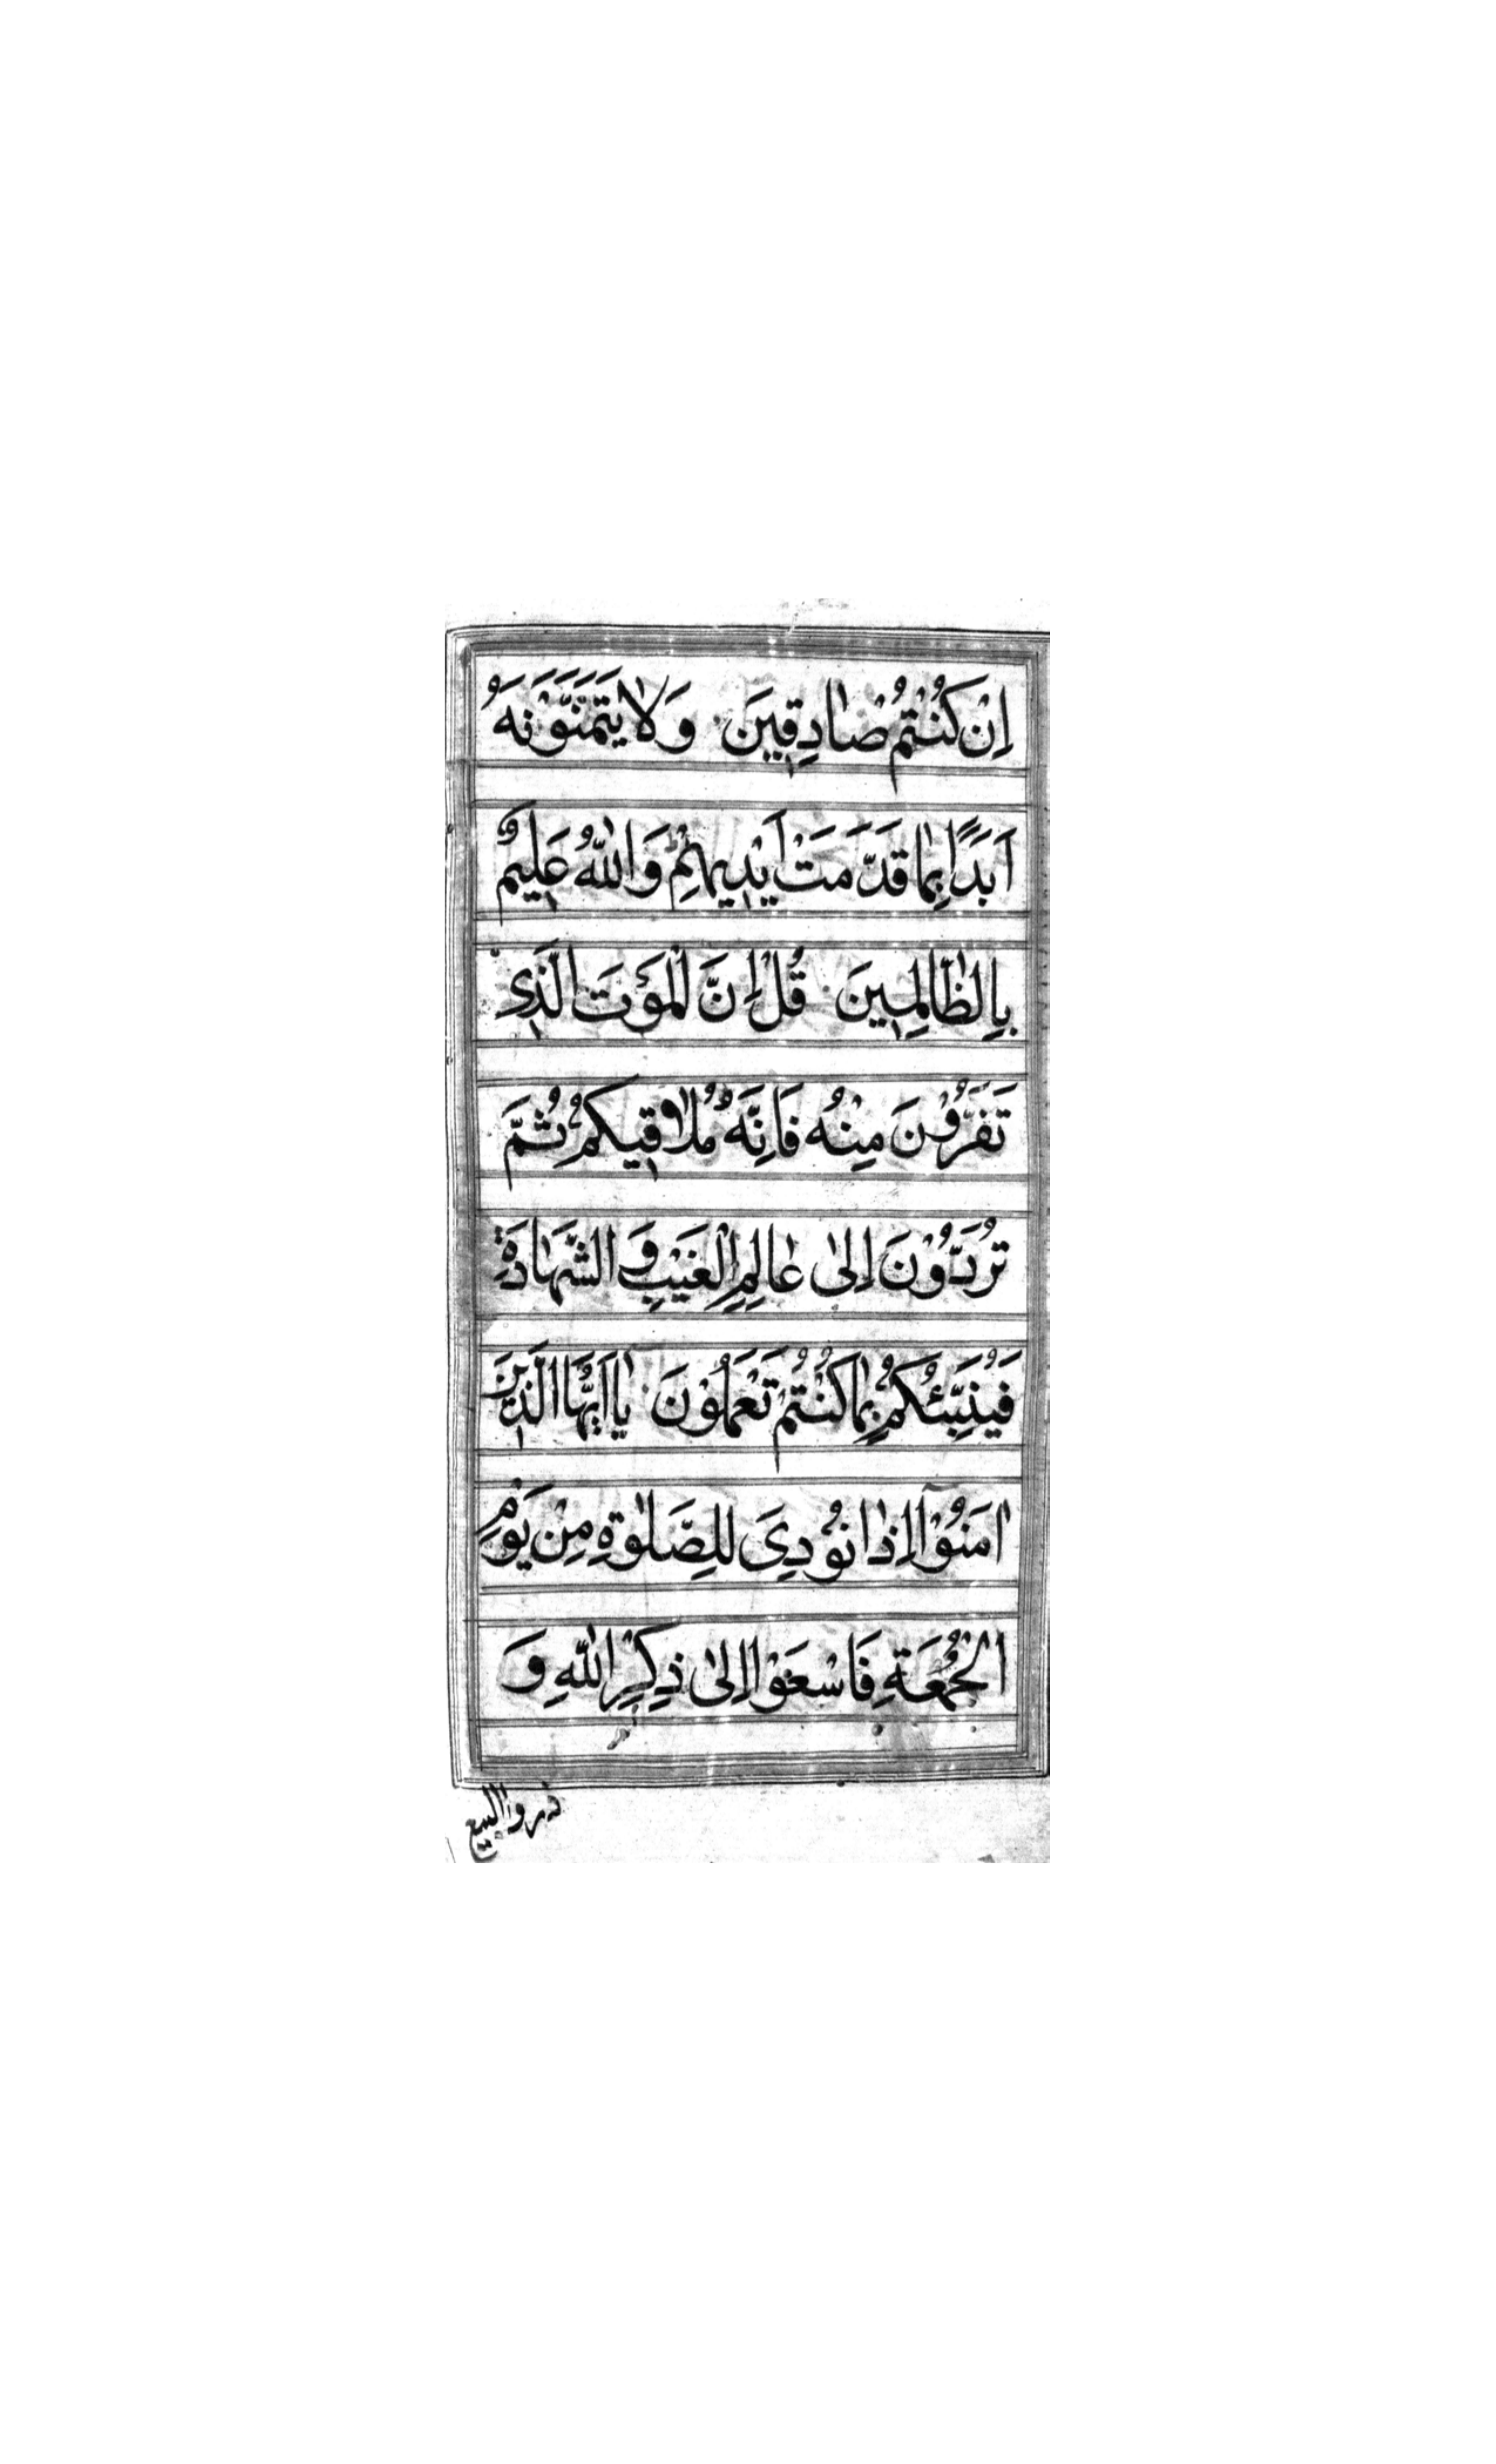 اِنْ كُنْتُمْ صٰادِقِينَ وَلاٰ يَتَمَنَّوْنَهُ
اَبَدًا بِمٰا قَدَّمَتْ اَيْدِيهِمْ وَاللّٰهُ عَلِيمٌ
بِالظّٰالِمِينَ قُلْ اِنَّ الْمَوْتَ الَّذِى
تَفِرُّوْنَ مِنْهُ فَاِنَّهُ مُلاٰقِيكُمْ ثُمَّ
تُرَدُّوْنَ اِلىٰ عٰالِمِ الْغَيْبِ وَ الشَّهٰادَةِ
فَيُنَبِّئُكُمْ بِمٰا كُنْتُمْ تَعْمَلُوْنَ يٰا اَيُّهَا الَّذِينَ
اٰمَنُوْآ اِذٰا نُوْدِىَ لِلصَّلٰوةِ مِنْ يَوْمِ
الْجُمُعَةِ فَاسْعَوْا اِلىٰ ذِكْرِ اللّٰهِ وَ
ذروا البيع